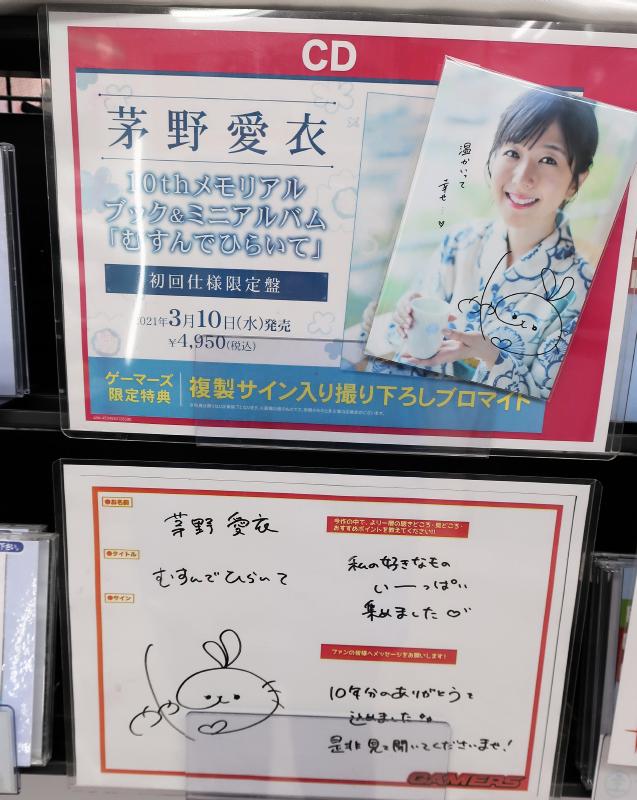 CD
茅野愛衣
10thメモリアル
ブック&ミニアルバム
「むすんでひらいて」
初回仕様限定盤
2021年3月10日(水)発売
¥4,950(税込)
ゲーマーズ
限定特典
複製サイン入り撮り下ろしブロマイド
温かいって
幸せ…♥
●お名前
茅野 愛衣
●タイトル
むすんでひらいて
●サイン
今作の中で、より一層の聴きどころ・見どころ・
おすすめポイントを教えてください!!
私の好きなもの
いーっぱい
集めました♡
ファンの皆様へメッセージをお願いします!
10年分のありがとうを
込めました
是非見て聞いてくださいませ!
GAMERS
下さい。